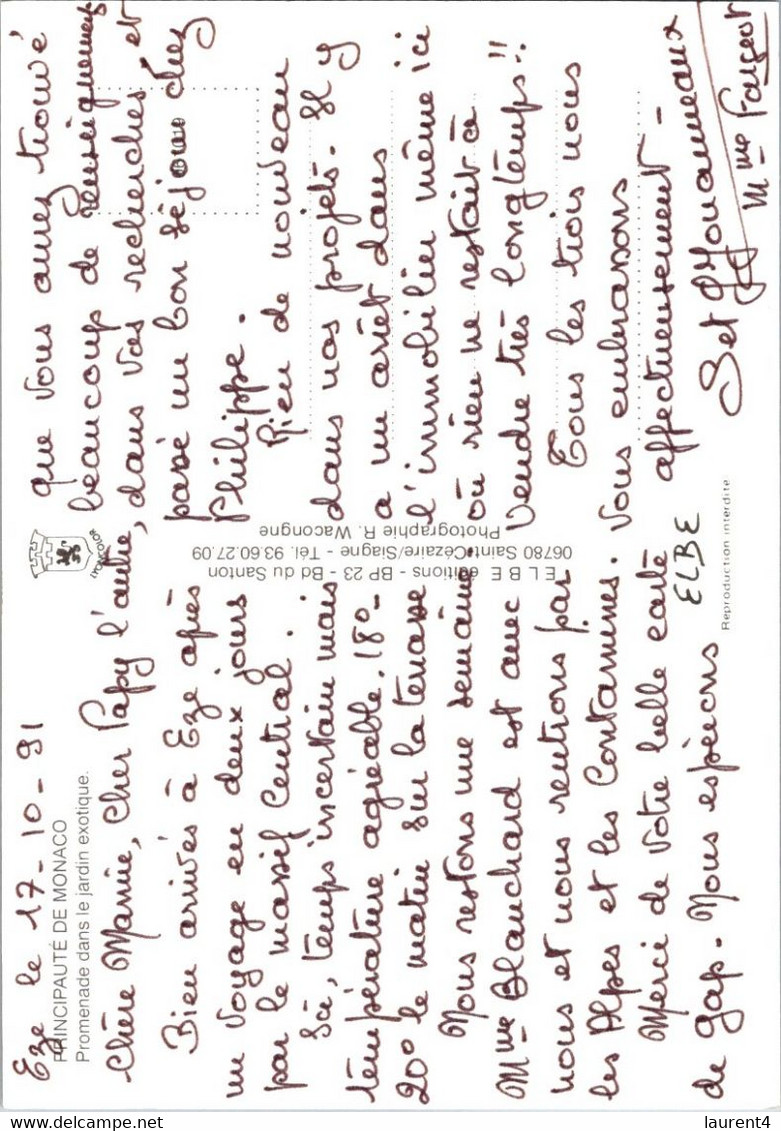 Eze le 17-10-91
PRINCIPAUTÉ DE MONACO
Promenade dans le jardin exotique.
Chère Mamie, Cher Papy l'autre,
Bien arrivés à Eze après
un voyage en deux jours
par le massif Central.
Ici, temps incertain mais
température agréable. 18° -
20° le matin sur la terrasse
Nous restons une semaine
Mme Blanchard est avec
nous et nous rentrons par
les Alpes et les Contamines.
Merci de votre belle carte
de gap. Nous espérons
LYONCOLOR
E L B E éditions - BP 23 - Bd du Santon
06780 Saint-Cézaire/Siagne - Tél. 93.60.27.09
Photographie R. Wacongne
ELBE
Reproduction interdite
que vous avez trouvé
beaucoup de renseignements
dans vos recherches et
passé un bon séjour chez
Philippe.
Rien de nouveau
dans nos projets. Il y
a un arrêt dans
l'immobilier même ici
où rien ne restait à
vendre très longtemps!!
Tous les trois nous
vous embrassons
affectueusement -
Mme
laurent4